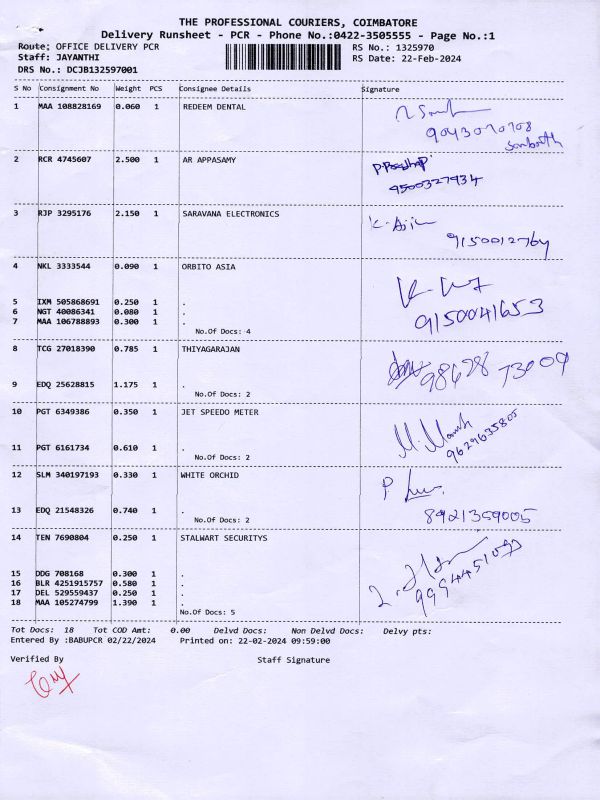 THE PROFESSIONAL COURIERS, COIMBATORE
Delivery Runsheet - PCR - Phone No.:0422-3505555 - Page No.:1
Route: OFFICE DELIVERY PCR
RS No.: 1325970
Staff: JAYANTHI
RS Date: 22-Feb-2024
DRS No.: DCJB132597001
S No Consignment No Weight PCS Consignee Details Signature
1 MAA 108828169 0.060 1 REDEEM DENTAL
2 RCR 4745607 2.500 1 AR APPASAMY
9500327934
3 RJP 3295176 2.150 1 SARAVANA ELECTRONICS
9150012764
4 NKL 3333544 0.090 1 ORBITO ASIA
5 IXM 505868691 0.250 1 .
6 NGT 40086341 0.080 1 .
9150041653
7 MAA 106788893 0.300 1 .
No.Of Docs: 4
8 TCG 27018390 0.785 1 THIYAGARAJAN
9 EDQ 25628815 1.175 1 .
No.Of Docs: 2
10 PGT 6349386 0.350 1 JET SPEEDO METER
9629635805
11 PGT 6161734 0.610 1 .
No.Of Docs: 2
12 SLM 340197193 0.330 1 WHITE ORCHID
13 EDQ 21548326 0.740 1 .
8921359005
No.Of Docs: 2
14 TEN 7690804 0.250 1 STALWART SECURITYS
15 DDG 708168 0.300 1 .
16 BLR 4251915757 0.580 1 .
17 DEL 529559437 0.250 1 .
18 MAA 105274799 1.390 1 .
No.Of Docs: 5
Tot Docs: 18 Tot COD Amt: 0.00 Delvd Docs: Non Delvd Docs: Delvy pts:
Entered By :BABUPCR 02/22/2024 Printed on: 22-02-2024 09:59:00
Verified By Staff Signature